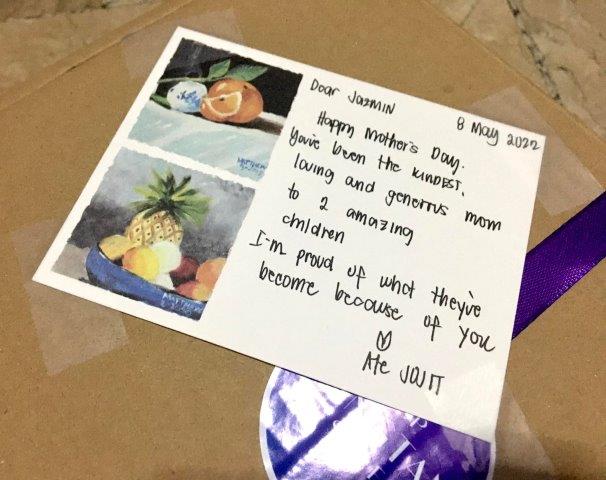 Dear Jazmin
8 May 2022
Happy Mother's Day.
You've been the KINDEST,
loving and generous mom
to 2 amazing
children
I'm proud of what they've
become because of you
Ate JOJIT
MATTHEW